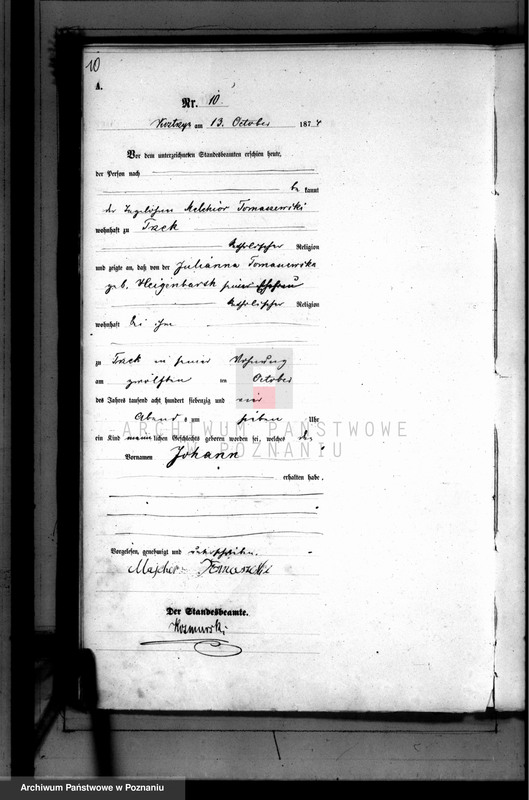 10
A.
Nr. 10
am 13. October 1874
Vor dem unterzeichneten Standesbeamten erschien heute,
der Person nach
be kannt
der Melchior Tomaszewski
wohnhaft zu Trzek
katholischer Religion
und zeigte an, daß von der Julianna Tomaszewska
geb. seiner Ehefrau
katholischer Religion
wohnhaft bei ihm
zu Trzek in seiner Wohnung
am zwölften ten October
des Jahres tausend acht hundert siebenzig und vier
Abends um sieben Uhr
ein Kind männlichen Geschlechts geboren worden sei, welches den
Vornamen Johann
erhalten habe.
Vorgelesen, genehmigt und unterschrieben.
Majcher
Der Standesbeamte.
ARCHIWUM PAŃSTWOWE
W POZNANIU
Archiwum Państwowe w Poznaniu